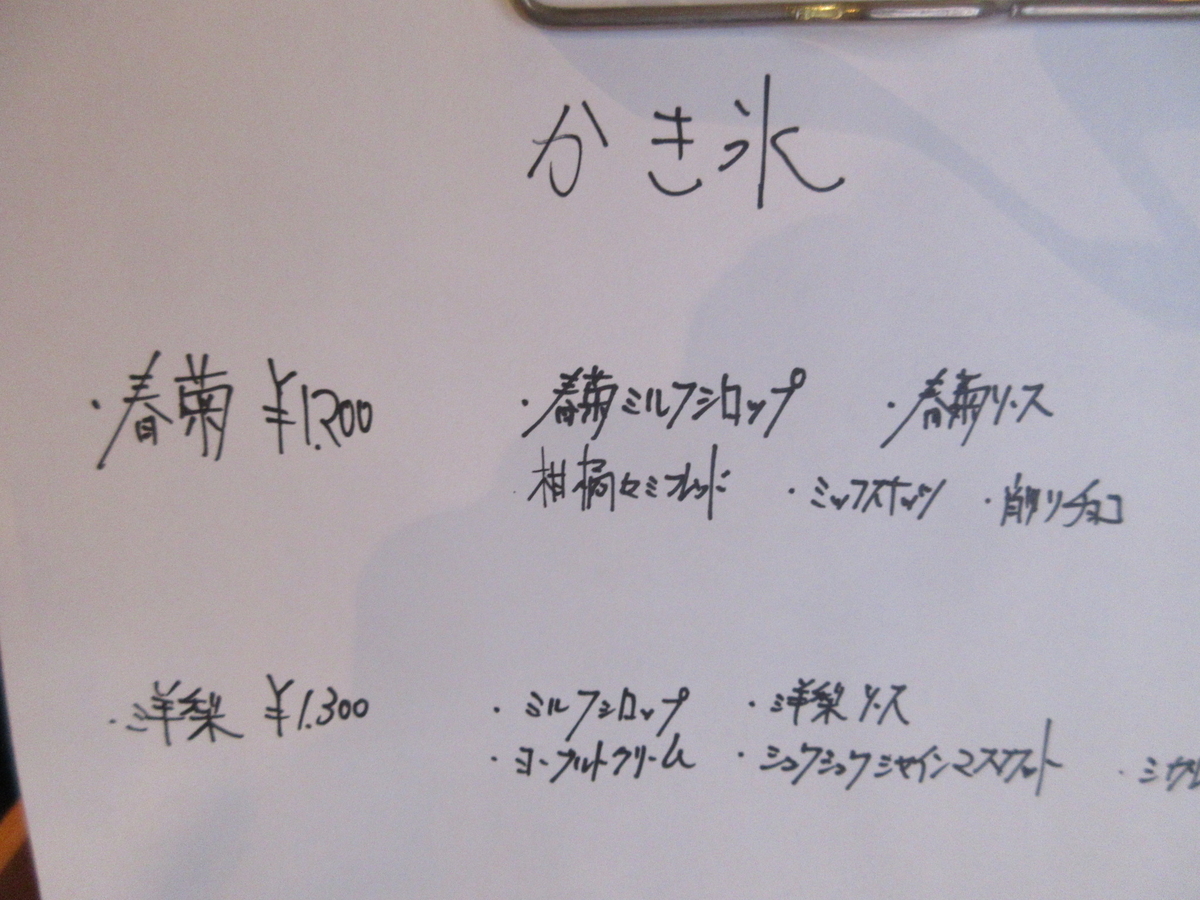 かき氷
・春菊 ¥1.200 ・春菊ミルクシロップ ・春菊ソース
・柑橘 ・ミックスナッツ ・削りチョコ
・洋梨 ¥1.300 ・ミルクシロップ ・洋梨ソース
・ヨーグルトクリーム ・シュワシュワシャインマスカット